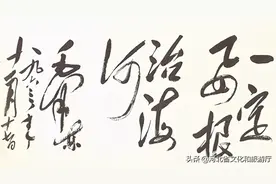 一定
要根
治海
河
毛澤東
一九六三年
十一月十七日
头条 @河北省文化和旅游厅